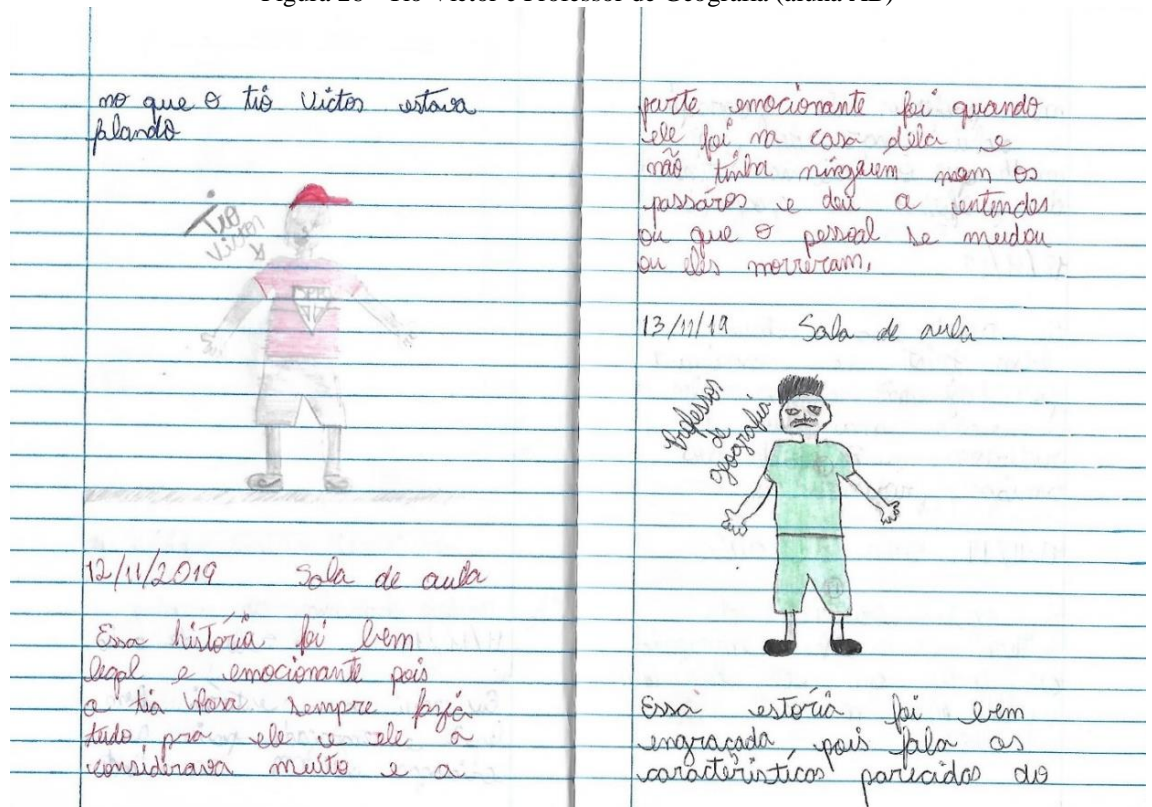 Figura 28 - Tio Victor e Professor de Geografia (aluna AB)
no que o tio Victor estava
falando
Tio
Victor
12/11/2019 Sala de aula
Essa história foi bem
legal e emocionante pois
a tia Rosa sempre fazia
tudo pra ele e ele a
considerava muito e a
parte emocionante foi quando
ele foi na casa dela e
não tinha ninguem nem os
passáros e deu a entender
ou que o pessoal se mudou
ou eles morreram,
13/11/19 Sala de aula
Professor
de
geografia
Essa estória foi bem
engraçada, pois fala as
características parecidas do